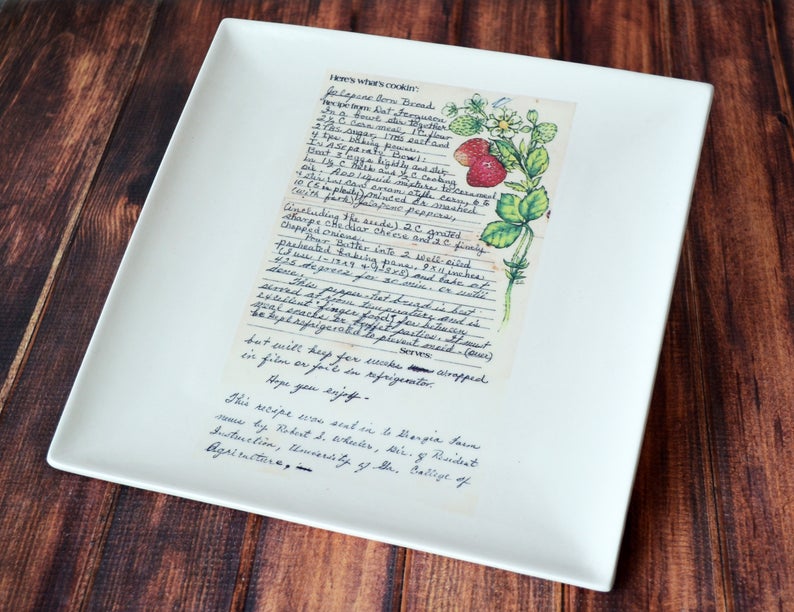 Here's what's cookin':
Jalapeno Corn Bread
Recipe from: Dot Ferguson
In a bowl stir together
2½ C corn meal, 1 C flour
2 Tbs sugar, 1 Tbs salt and
4 tsps. baking power.
In a separate Bowl:
Beat 3 eggs lightly and stir
in 1½ C milk and ½ C cooking
oil. Add liquid mixture to cornmeal
& stir in 1 can cream style corn, 6 to
10 (5 is plenty) minced or mashed
(with fork) jalapeno peppers,
(including the seeds) 2 C. grated
sharpe cheddar cheese and 2 C finely
chopped onions.
Pour Batter into 2 well-oiled
preheated baking pans, 9x11 inches
(I use 1-13x9 & 1-8x8) and bake at
425 degrees for 30 min. or until
done.
This pepper-hot bread is best
served at room temperature and is
excellent "finger food" for between
meal snacks or buffet parties. It must
be kept refrigerated to prevent mold - (over)
Serves:
but will keep for weeks wrapped
in film or foil in refrigerator.
Hope you enjoy -
This recipe was sent in to Georgia Farm
news by Robert S. Wheeler, Dir. of Resident
Instruction, University of Ga. College of
Agriculture,